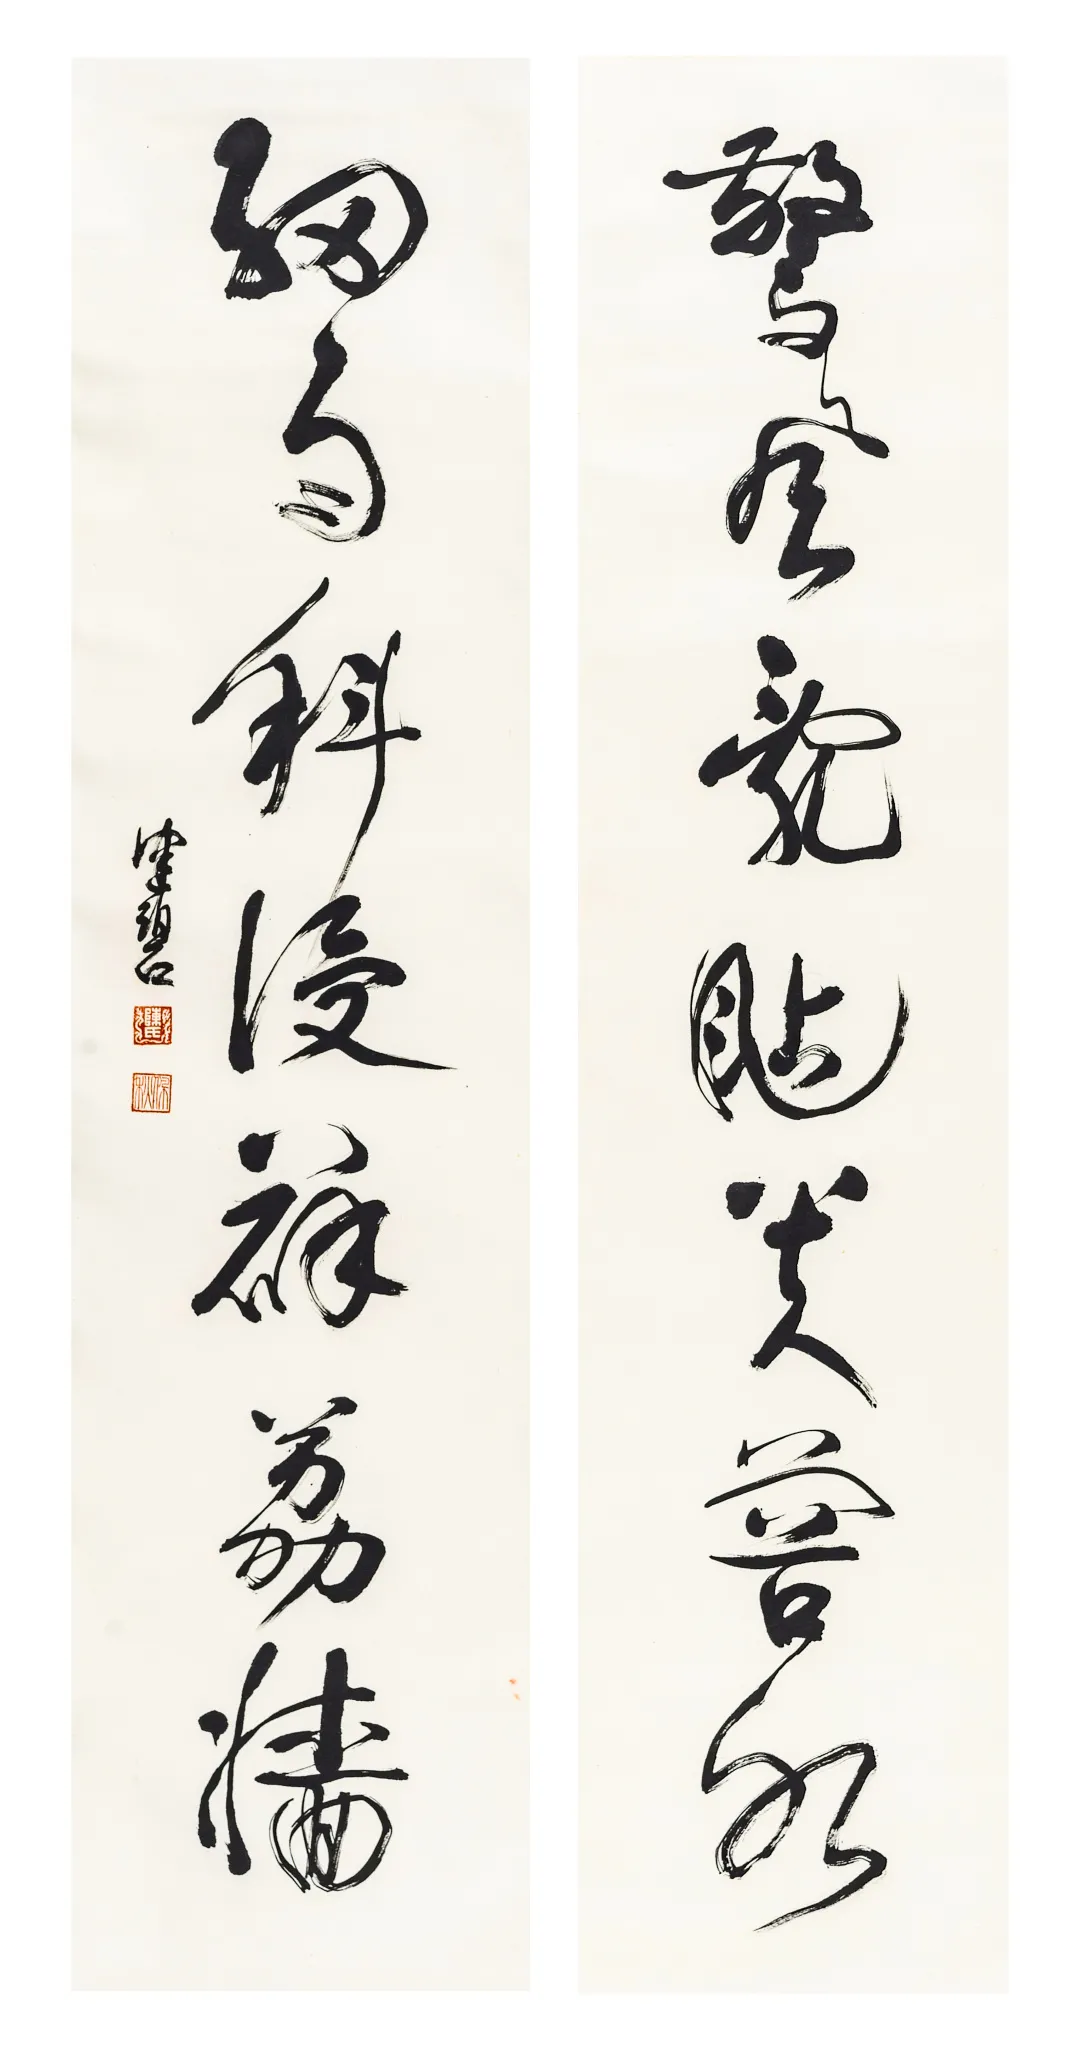 驚風亂颭芙蓉水
細雨斜侵薜荔牆
健碧